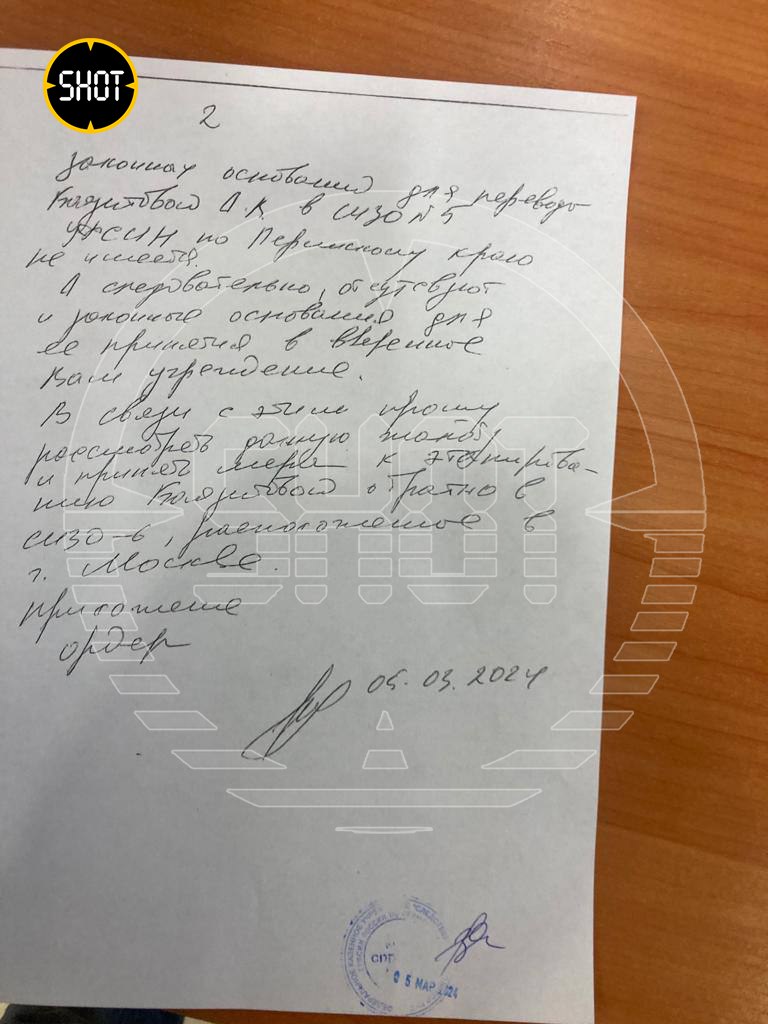 SHOT
2
законных оснований для перевода
Баязитовой А.К. в СИЗО №5
УФСИН по Пермскому краю
не имеется.
А следовательно, отсутствуют
и законные основания для
ее принятия в вверенное
Вам учреждение.
В связи с этим прошу
рассмотреть данную жалобу
и принять меры к этапирова-
нию Баязитовой обратно в
СИЗО-6, расположенное в
г. Москве.
приложение
ордер
05.03.2024
SHOT
ФЕДЕРАЛЬНОЕ КАЗЕННОЕ
05 МАР 2024